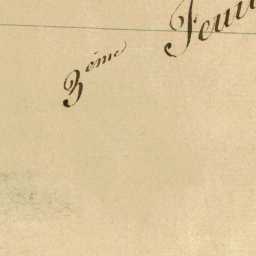 3ème Feui